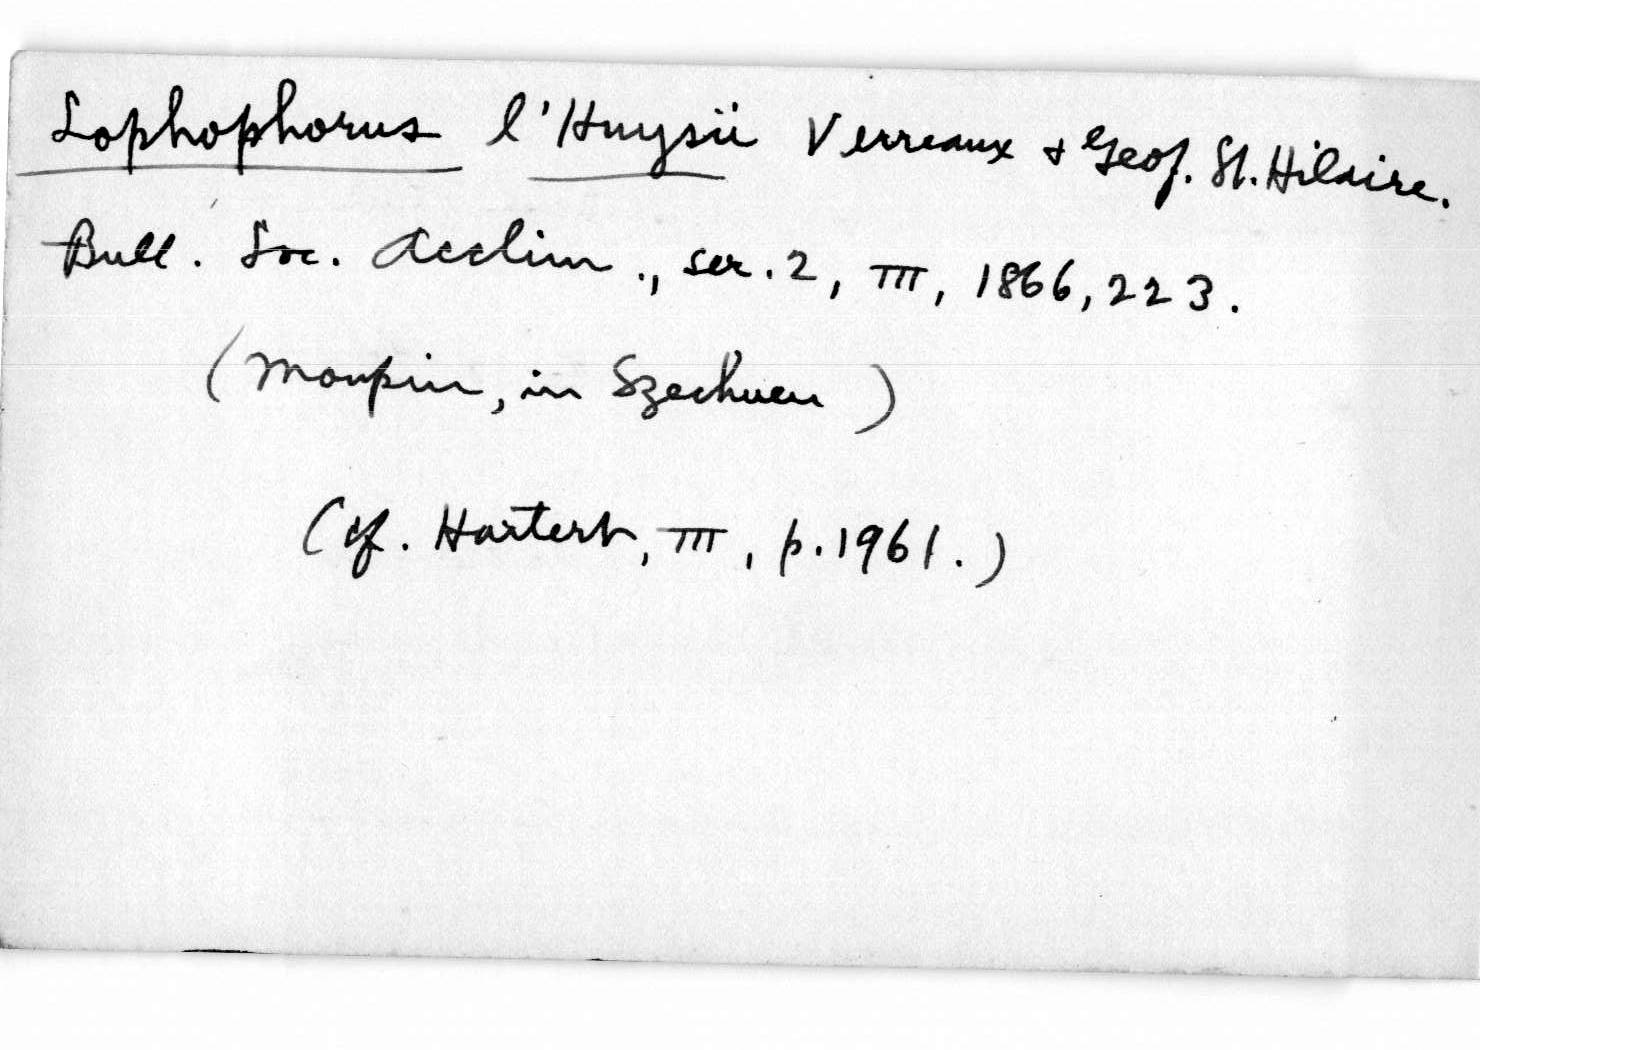 Lophophorus l'Huysii Verreaux & Geof. St. Hilaire.
Bull. Soc. Acclim., ser. 2, III, 1866, 223.
(Moupin, in Szechuen)
(cf. Hartert, III, p. 1961.)